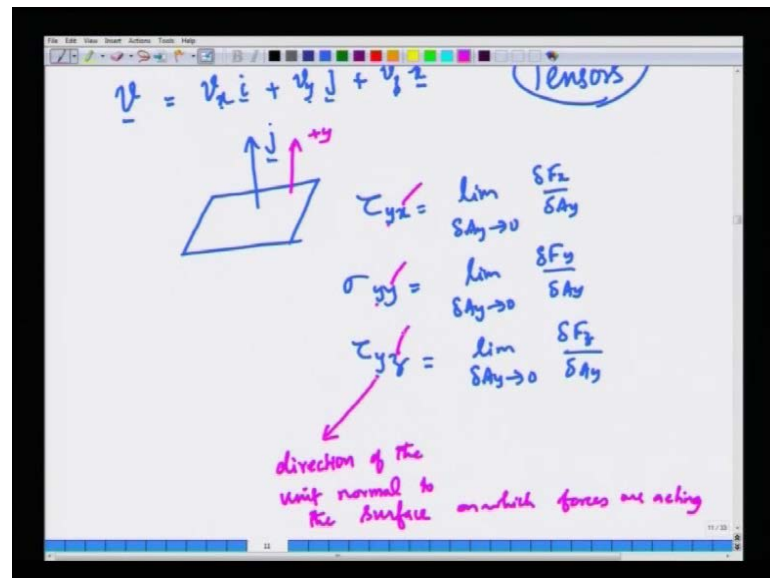 File Edit View Insert Actions Tools Help
v = vx i + vy j + vz k
Tensors
j +y
τyx = lim δAy→0 δFx/δAy
σyy = lim δAy→0 δFy/δAy
τyz = lim δAy→0 δFz/δAy
direction of the
unit normal to
the surface on which forces are acting
11